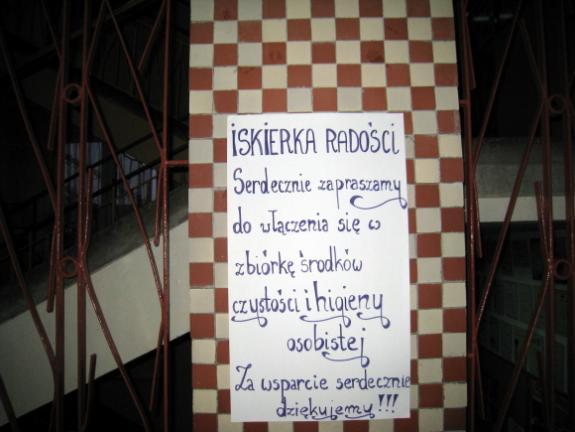 ISKIERKA RADOŚCI
Serdecznie zapraszamy
do włączenia się w
zbiórkę środków
czystości i higieny
osobistej
Za wsparcie serdecznie
dziękujemy!!!